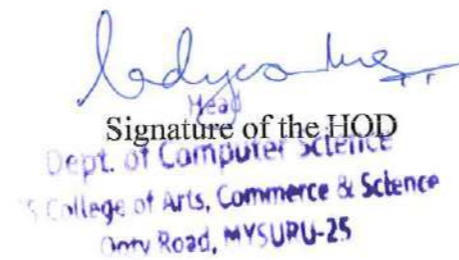 Head
Signature of the HOD
Dept. of Computer Science
College of Arts, Commerce & Science
Ooty Road, MYSURU-25